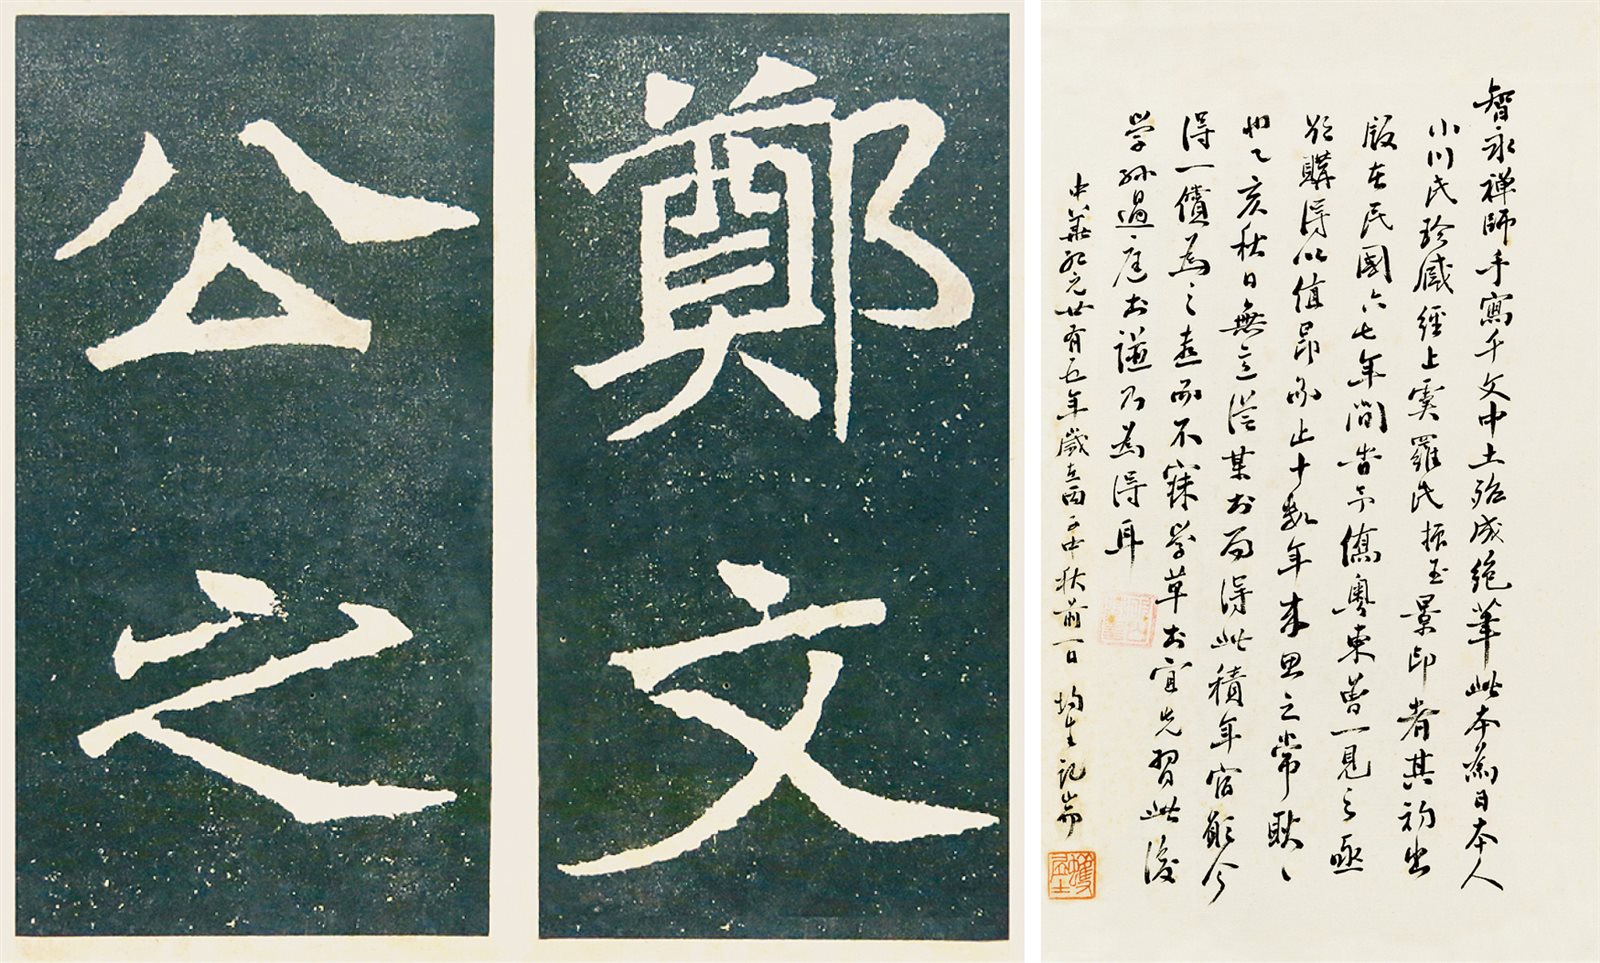 鄭文
公之
智永禅師手寫千文中土殆成絶筆此本為日本人
小川氏珍藏經上虞羅氏振玉景印者其初出
版在民國六七年間昔予僑粤東曽一見之亟
欲購得以值昂而止十数年来思之常耿〻
也乙亥秋日無意從某書肆得此積年宿願今
得一償為之喜而不寐学草書宜先習此後
学孫過庭書譜乃為得耳
中華紀元廿有五年歲在丙子中秋前一日 均生記